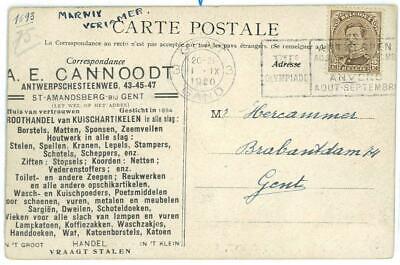 1693
25
MARNIX
VERCAMER.
CARTE POSTALE
La Correspondance au recto n'est pas admise par tous les pays étrangers. (Se renseigner
Correspondance
A. E. CANNOODT
ANTWERPSCHESTEENWEG, 43-45-47
ST-AMANDSBERG BIJ GENT
(LET WEL OP HET ADRES)
Huis van vertrouwen Gesticht in 1884
GROOTHANDEL van KUISCHARTIKELEN in alle slag:
Borstels, Matten, Sponsen, Zeemvellen
Houtwerk in alle slag :
Stelen, Spellen, Kranen, Lepels, Stampers,
Schotels, Scheppers, enz.
Ziften : Stopsels ; Koorden : Netten ;
Vederenstoffers ; enz.
Toilet- en andere Zeepen ; Reukwerken
en alle andere opschikartikelen.
Wasch- en Kuischpoeders, Poetsmiddelen
voor schoenen, vuren, metalen en meubelen
Sargiën, Dweilen, Schoteldoeken,
Vliegen voor alle slag van dieren en waren
Lampkatoen, Koffiezakken, Waschzakjes,
Handdoeken, Wat, Katoenborstels, Katoen
IN 'T GROOT HANDEL IN 'T KLEIN
VRAAGT STALEN
Adresse
GENT
1920
GAND
OLYMPIADE
ANVERS
AOUT-SEPTEMBRE
Mr Hercammer
Brabantdam 14
Gent